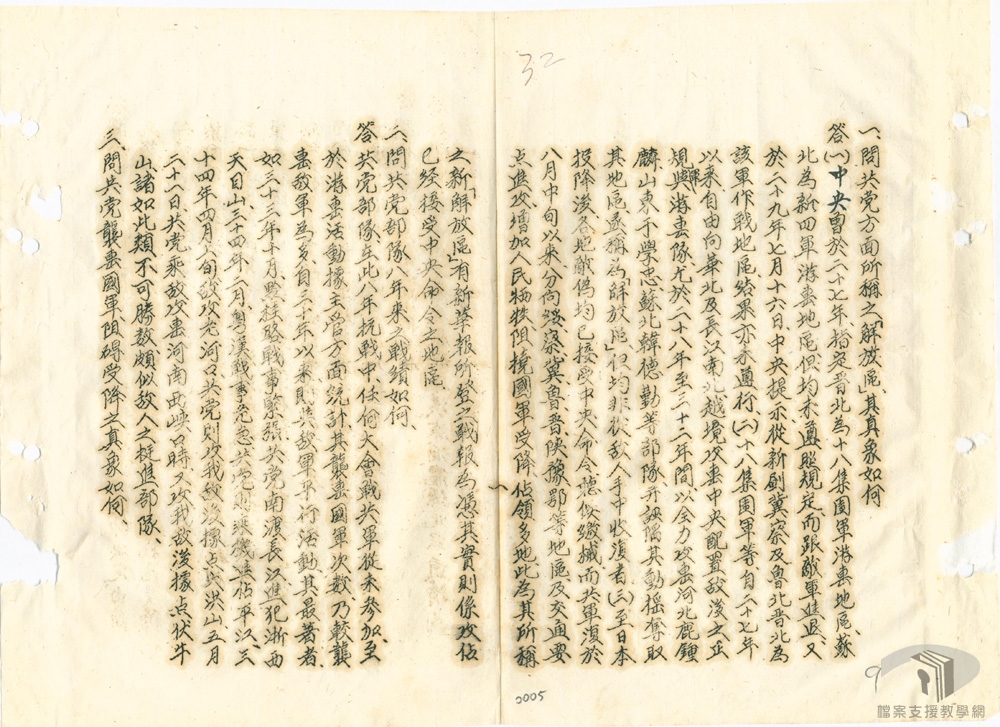 32
一、問共党方面所稱之「解放區」其真象如何
答(一)中央曾於二十七年指定晋北為十八集團軍游击地區、蘇
北為新四軍游击地區但均未遵照規定而跟敵軍進退、又
於二十九年七月十六日、中央提示從新劃冀察及魯北晋北為
該軍作戰地區結果亦未遵行、(二)十八集團軍等自二十七年
以来、自由向華北及長江以南北越境攻击中央配置敌後之正
規與游击隊尤於二十八年至三十二年間以全力攻击河北鹿鍾
麟山東于學忠蘇北韓德勤等部隊并誘陷其動搖奪取
其地區遂稱為解放區但均非從敌人手中收復者(三)至日本
投降後各地敵偽均已接受中央命令聽候繳械而共軍復於
八月中旬以来分向綏察冀魯晋陝豫鄂等地區及交通要
点進攻、增加人民牺牲阻撓國軍受降、佔領多地此為其所稱
之新「解放區」有新華報所登之戰報為憑其實則係攻佔
已經接受中央命令之地區
二、問共党部隊八年来之戰績如何、
答 共党部隊在此八年抗戰中、任何大會戰共軍從未參加、至
於游击活動據主管方面統計其襲击國軍次數乃較襲
击敌軍為多、自三十年以来則與敌軍平行活動其最著者
如三十三年十月、黔桂路戰事緊張、共党南渡長江進犯浙西
天目山三十四年二月、粵漢戰事危急共党則乘機襲佔平江、三
十四年四月六旬敌攻老河口共党則攻我敌後據点民洪山五月
二十一日共党乘敌攻击河南西峽口時又攻我敌後據点伏牛
山諸如此類不可勝数頗似敌人之挺進部隊、
三、問共党襲击國軍阻碍受降之真象如何、
0005
9
檔案支援教學網